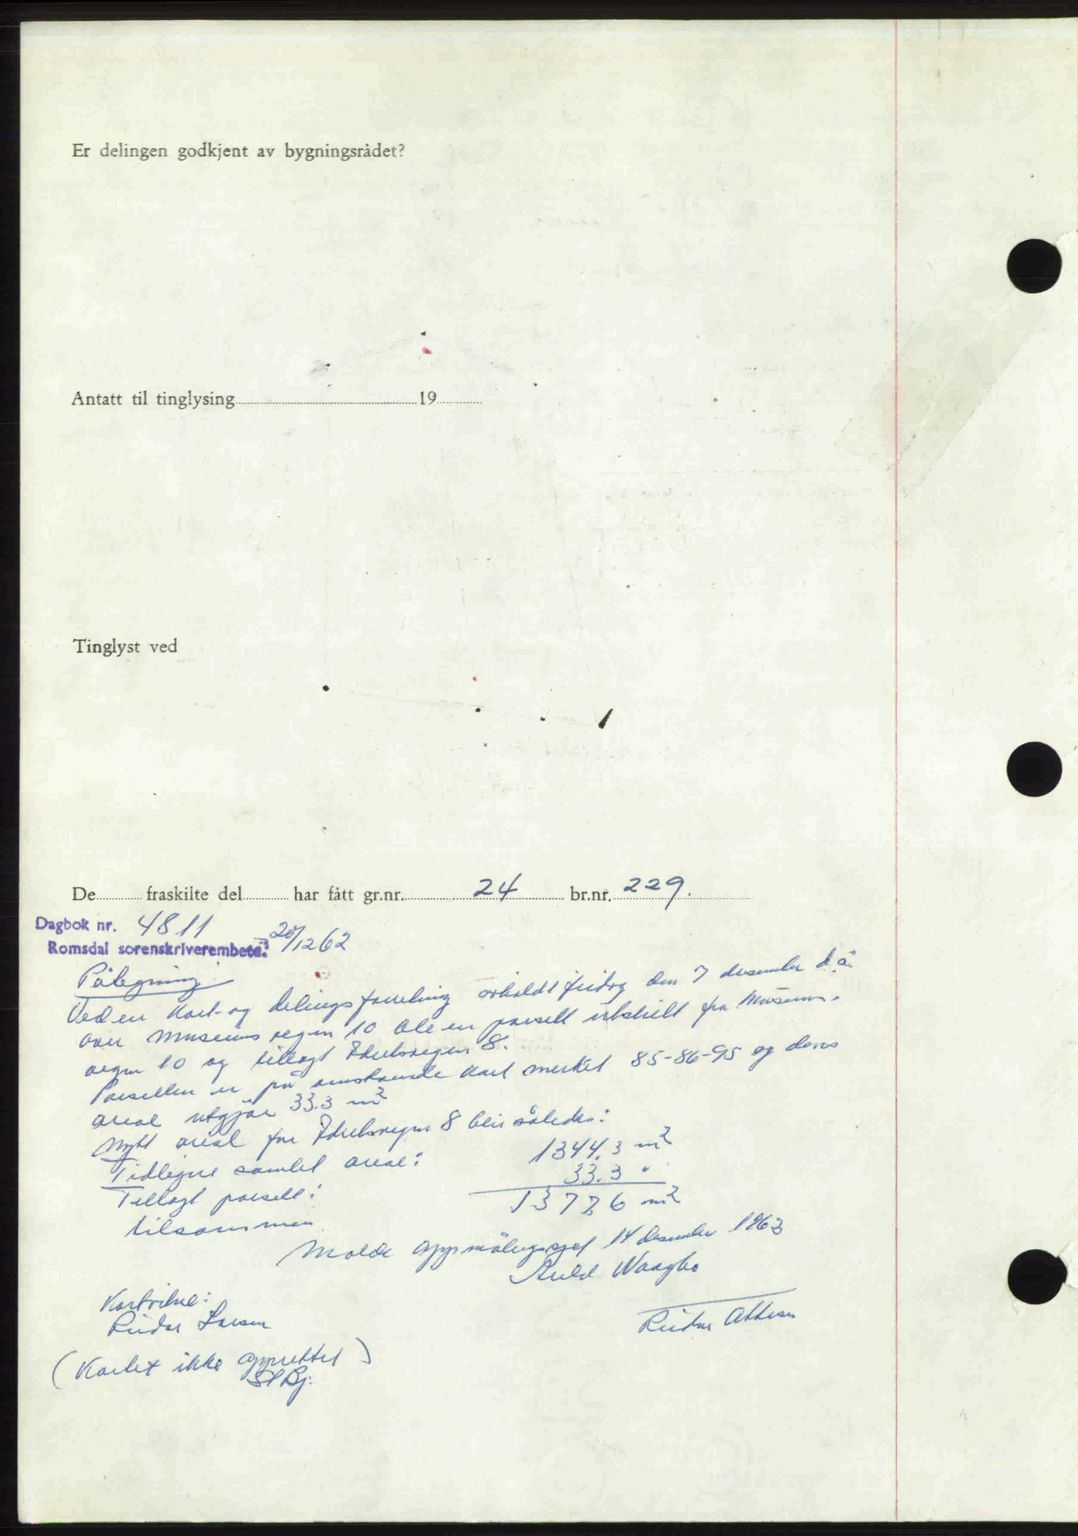 Er delingen godkjent av bygningsrådet?
Antatt til tinglysing 19
Tinglyst ved
De fraskilte del har fått gr.nr. 24 br.nr. 229.
Dagbok nr. 4811 20/12 62
Romsdal sorenskriverembete.
Påtegning.
Ved en kart- og delingsforretning avholdt fredag den 7 desember d.å.
over Museumsvegen 10 ble en parsell utskilt fra Museums-
vegen 10 og tillagt 8.
Parsellen er på omstående kart merket 85-86-95 og deres
areal utgjør 33.3 m²
Nytt areal for 8 blir således:
Tidligere samlet areal: 1344.3 m²
Tillagt parsell: 33.3 "
tilsammen 1377.6 m²
Molde oppmålingsvesen 14 desember 1962
Kartvitne:
Reidar Larsen
Reidar
(Kartet ikke opprettet)